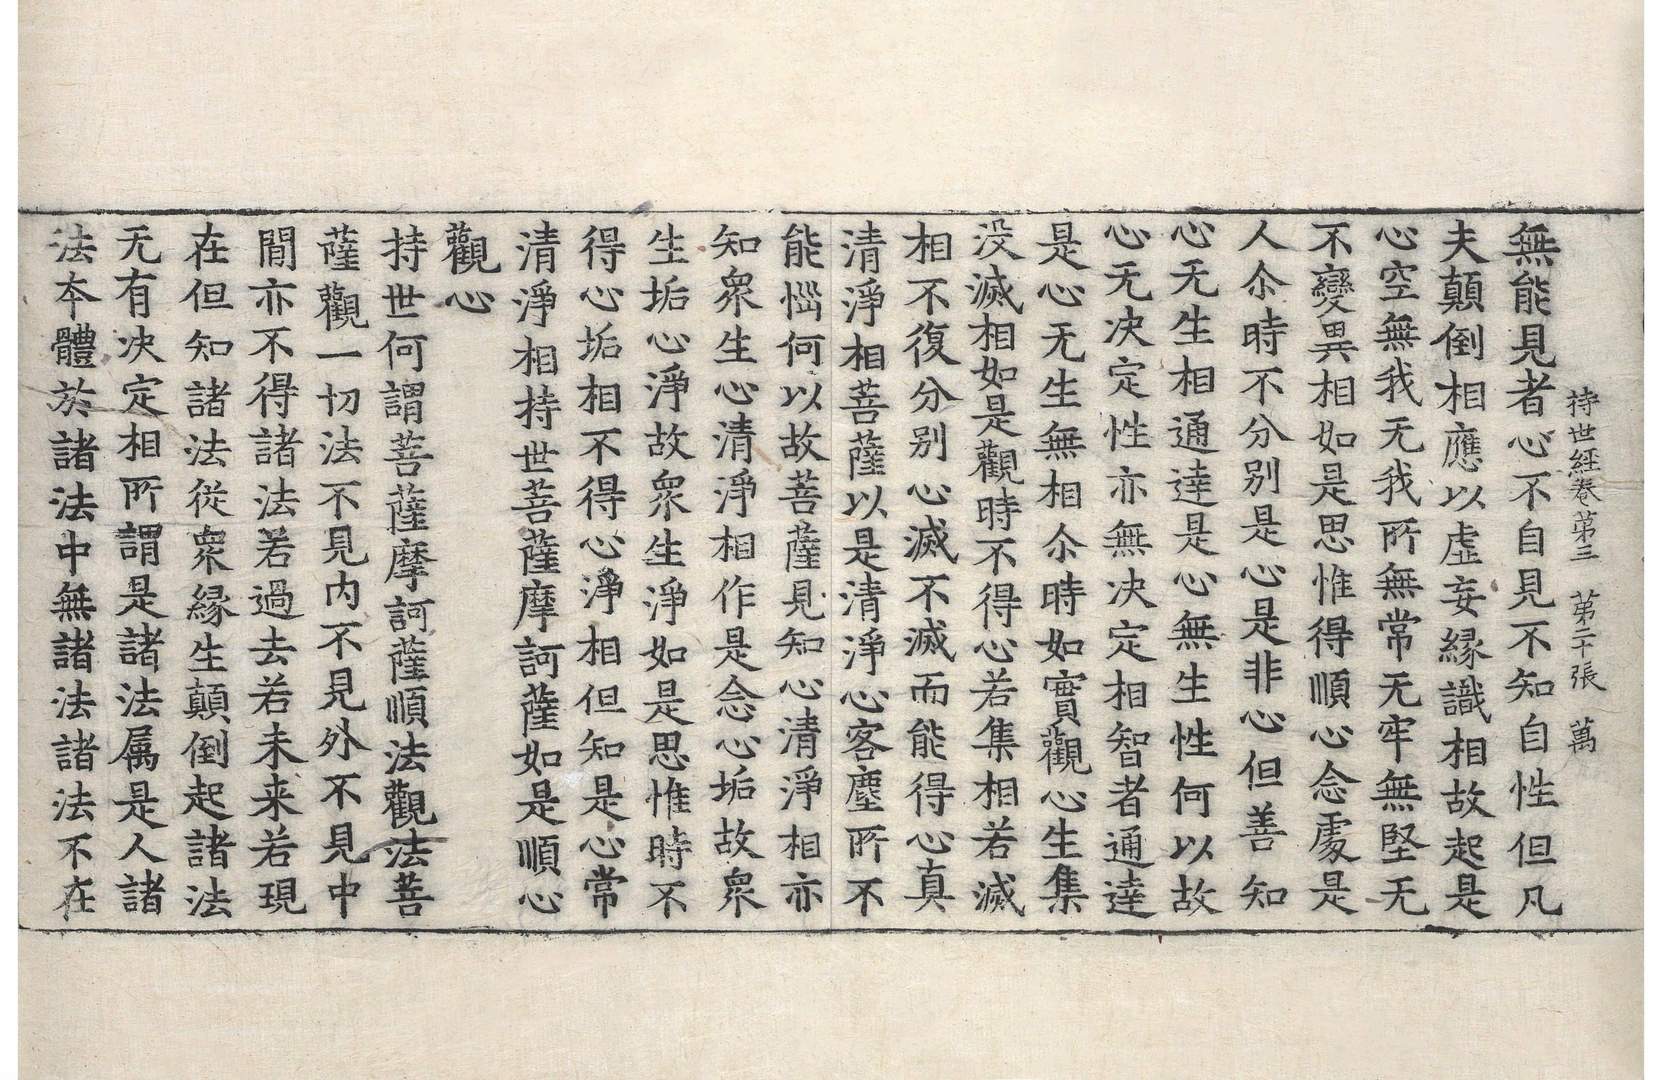 持世経卷第三　第二十張　萬
無能見者心不自見不知自性但凡
夫顛倒相應以虛妄縁識相故起是
心空無我无我所無常无牢無堅无
不變異相如是思惟得順心念處是
人尒時不分别是心是非心但善知
心无生相通達是心無生性何以故
心无决定性亦無决定相智者通達
是心无生無相尒時如實觀心生集
没滅相如是觀時不得心若集相若滅
相不復分别心滅不滅而能得心真
清淨相菩薩以是清淨心客塵所不
能惱何以故菩薩見知心清淨相亦
知衆生心清淨相作是念心垢故衆
生垢心淨故衆生淨如是思惟時不
得心垢相不得心淨相但知是心常
清淨相持世菩薩摩訶薩如是順心
觀心
持世何謂菩薩摩訶薩順法觀法菩
薩觀一切法不見内不見外不見中
閒亦不得諸法若過去若未来若現
在但知諸法從衆縁生顛倒起諸法
无有决定相所謂是諸法属是人諸
法本體於諸法中無諸法諸法不在